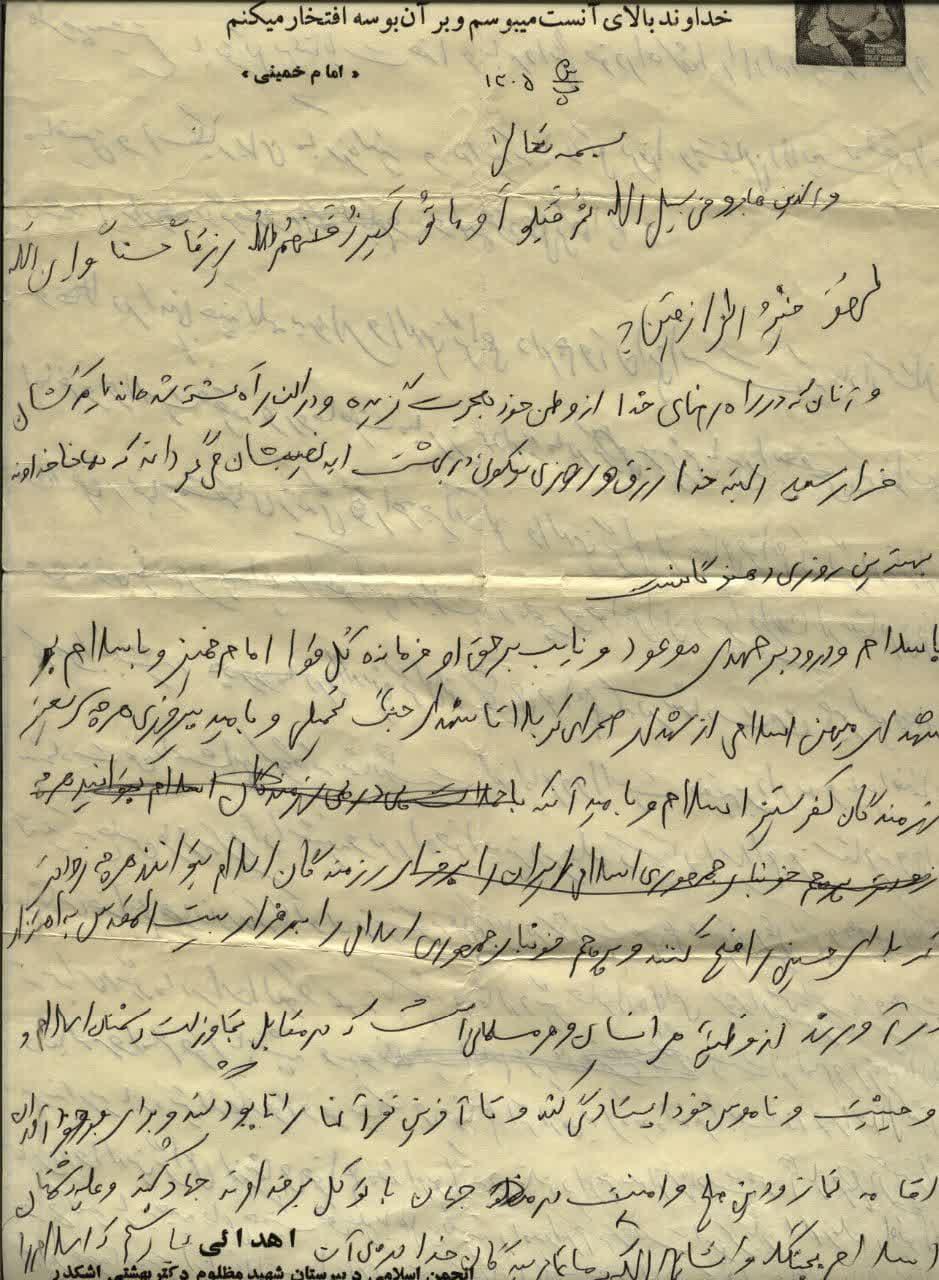 خداوند بالای آنست میبوسم و بر آن بوسه افتخار میکنم
« امام خمینی »
بسمه تعالی
والذین هاجرو فی سبیل الله ثم قتلو آو ماتو لیرزقنهم الله رزقاً حسناً و ان الله
لهو خیر الرازقین
و آنان که در راه رضای خدا از وطن خود هجرت گزیده و در این راه کشته شده اند یا مرگشان
فرار سید البته خدا رزق و روزی نیکوئی در بهشت ابد نصیبشان می گرداند که همانا خداوند
بهترین روزی دهندگانست
باسلام و درود بر مهدی موعود و نایب برحق او فرمانده کل قوا امام خمینی و با سلام بر
شهدای میهن اسلامی از شهدای صحرای کربلا تا شهدای جنگ تحمیلی و با امید پیروزی هر چه سریعتر
رزمندگان کفرستیز اسلام و با امید آنکه
رزمندگان اسلام بتوانند هر چه زودتر
کربلای حسینی را فتح کنند و پرچم خونبار جمهوری اسلامی را بر فراز بیت المقدس به اهتزاز
در آورند از وظیفه هر انسان و هر مسلمانی آنست که در مقابل تجاوز دشمنان اسلام و
و حیثیت و ناموس خود ایستادگی کند و تا آخرین نفر آنها را نابود کند و برای بوجود آوردن
اقامه نماز و دین و امنیت در جهان با توکل بر خداوند جهاد کند و علیه دشمنان
اسلام بجنگد و انشاالله ما بندگان خدا
اهدائی
انجمن اسلامی دبیرستان شهید مظلوم دکتر بهشتی اشکذر